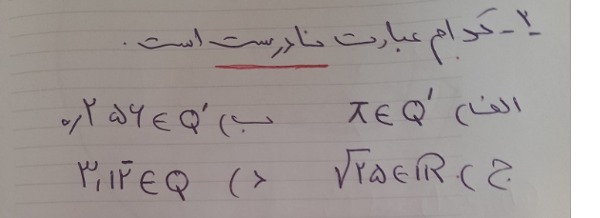 ۲- کدام عبارت نادرست است.
الف) π∈Q′ ب) ۰٫۲۵۶∈Q′
ج) √۲۵∈ℝ د) ۳٫۱۲̅∈Q